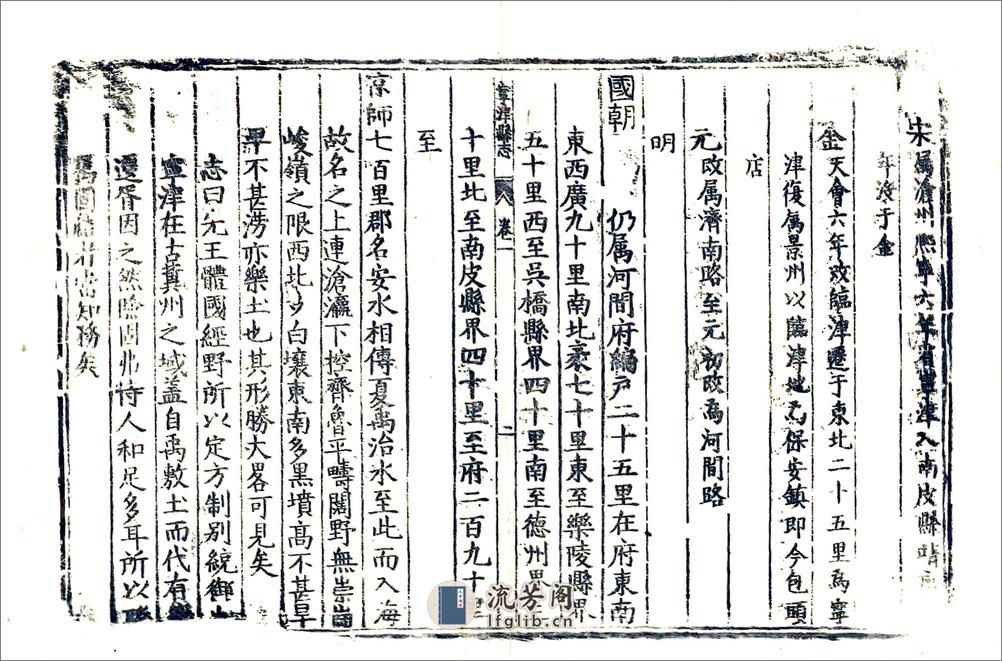 宋属滄州熙寧六年省寧津入南皮縣靖康
年没于金
金天會六年改臨津遷于東北二十五里為寧
津復属景州以臨津地為保安鎮即今包頭
店
元改属濟南路至元初改為河間路
明
國朝 仍属河間府編户二十五里在府東南
東西廣九十里南北袤七十里東至樂陵縣界
寧津縣志 卷一 二
五十里西至吳橋縣界四十里南至德州界
十里北至南皮縣界四十里至府二百九十里
至
京師七百里郡名安水相傳夏禹治水至此而入海
故名之上連滄瀛下控齊魯平疇闊野無崇岡
峻嶺之限西北多白壤東南多黑墳高不甚旱
畀不甚澇亦樂土也其形勝大畧可見矣
志曰先王體國經野所以定方制别統御
寧津在古冀州之域盖自禹敷土而代有
遷胥因之然險固弗恃人和足多耳所以
知務矣
流芳阁
lfglib.cn